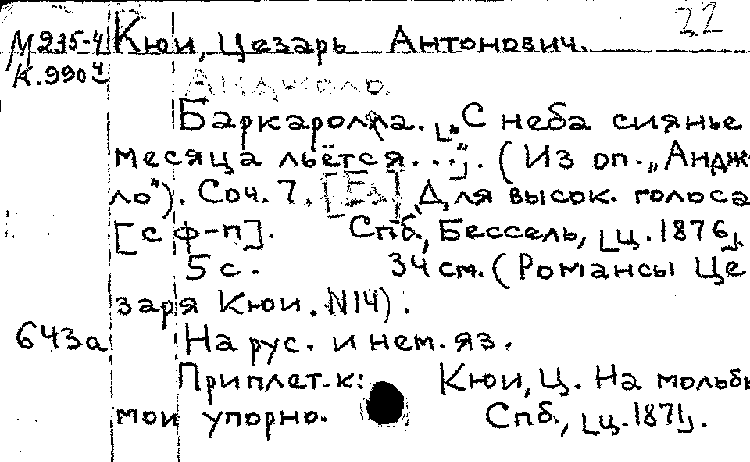 22
М 235-4 Кюи, Цезарь Антонович.
К.990 Анджело.
Баркаролла. [„С неба сиянье
месяца льётся...”]. (Из оп. „Андж
ло"). Соч. 7. Для высок. голоса
[с ф-п]. Спб., Бессель, [ц. 1876].
5 с. 34 см. (Романсы Це
заря Кюи. N14).
643а На рус. и нем. яз.
Приплет. к: Кюи, Ц. На мольбы
мои упорно. Спб., [ц. 1871].